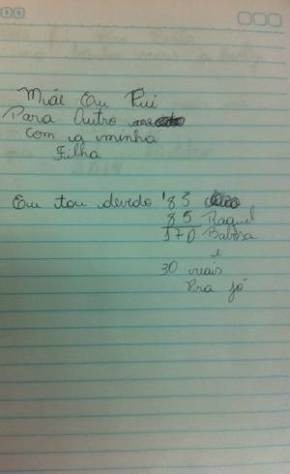 Mãe Eu Fui
Para Outro
com a minha
Filha
Eu tou devedo 85
85 Raquel
170 Babosa
e
30 reais
Pra jó